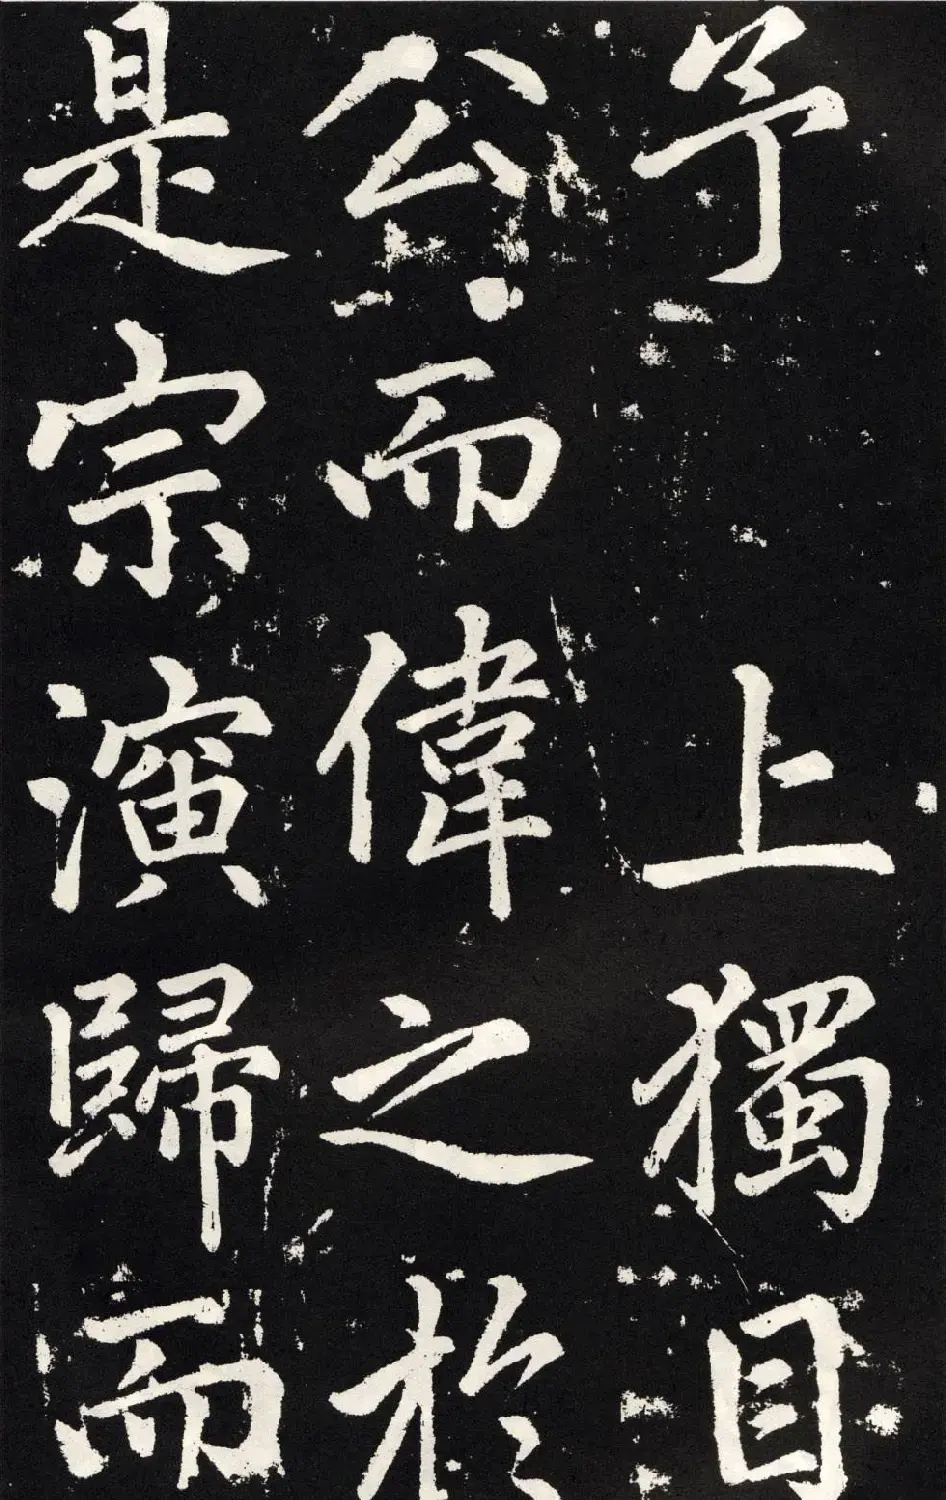 予上獨目
公而偉之於
是宗演歸而